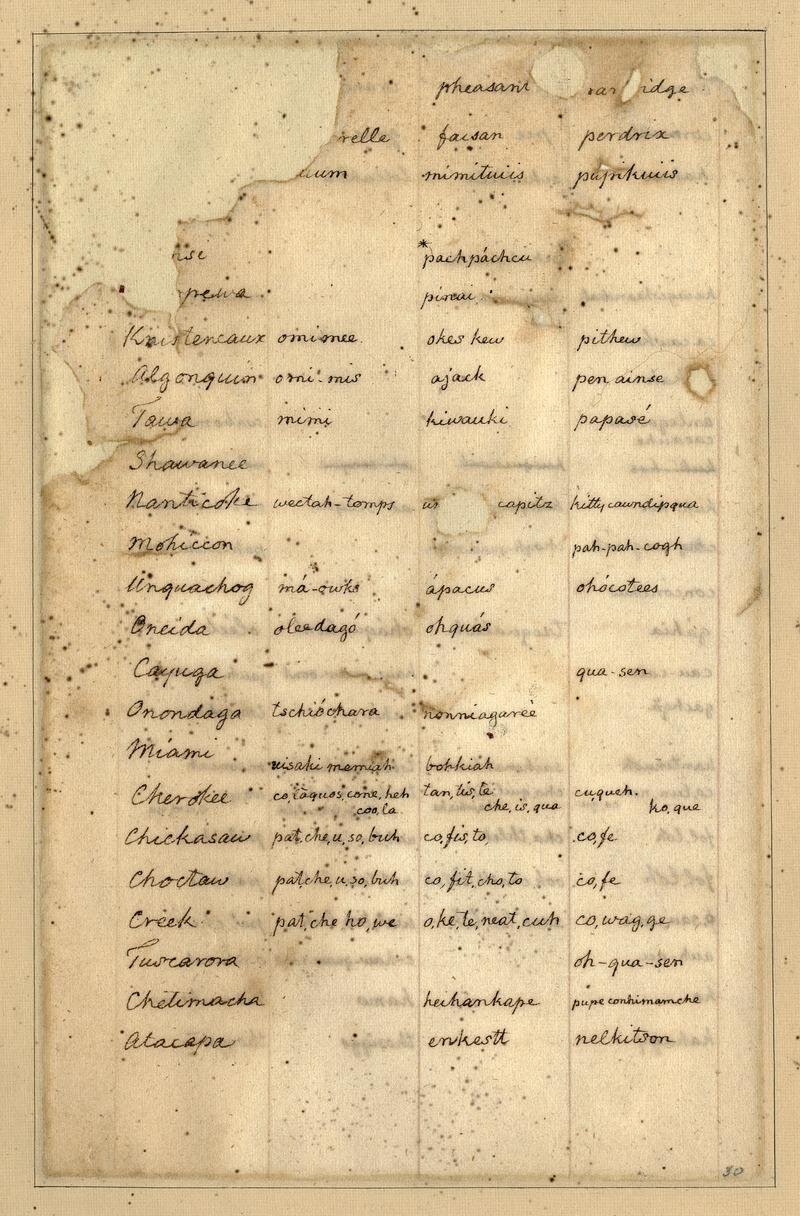 pheasant
faisan perdrix
mimituiis
pachpáchcu
pineai
Knisteneaux omimee okes kew pithew
Algonquin omi-mis ajack pen ainse
Tawa mimi kiwauki papasé
Shawanee
Nanticoke weetah-tomps capitz kittycawndipqua
Mohiccon pah-pah-cogh
Unquachog má-owks ápacus ohócotees
Oneida oleedagó ohquás
Cayuga qua-sen
Onondaga tschióchara nonniagareè
Miami
memiah bohkiah
Cherokee co,laquos,cone,heh tan,tis,te cuqueh.
coo,la che,is,qua ko,que
Chickasaw pat,che,u,so,buh co,fis,to co,fe
Choctaw patche,u,so,buh co,fit,cho,to co,fe
Creek pat,che ho,we o,ke,te,neat,cuh co,wag,ge
Tuscarora oh-qua-sen
Chetimacha hechankape pupe conhimamche
Atacapa enkestt nelkitson
30